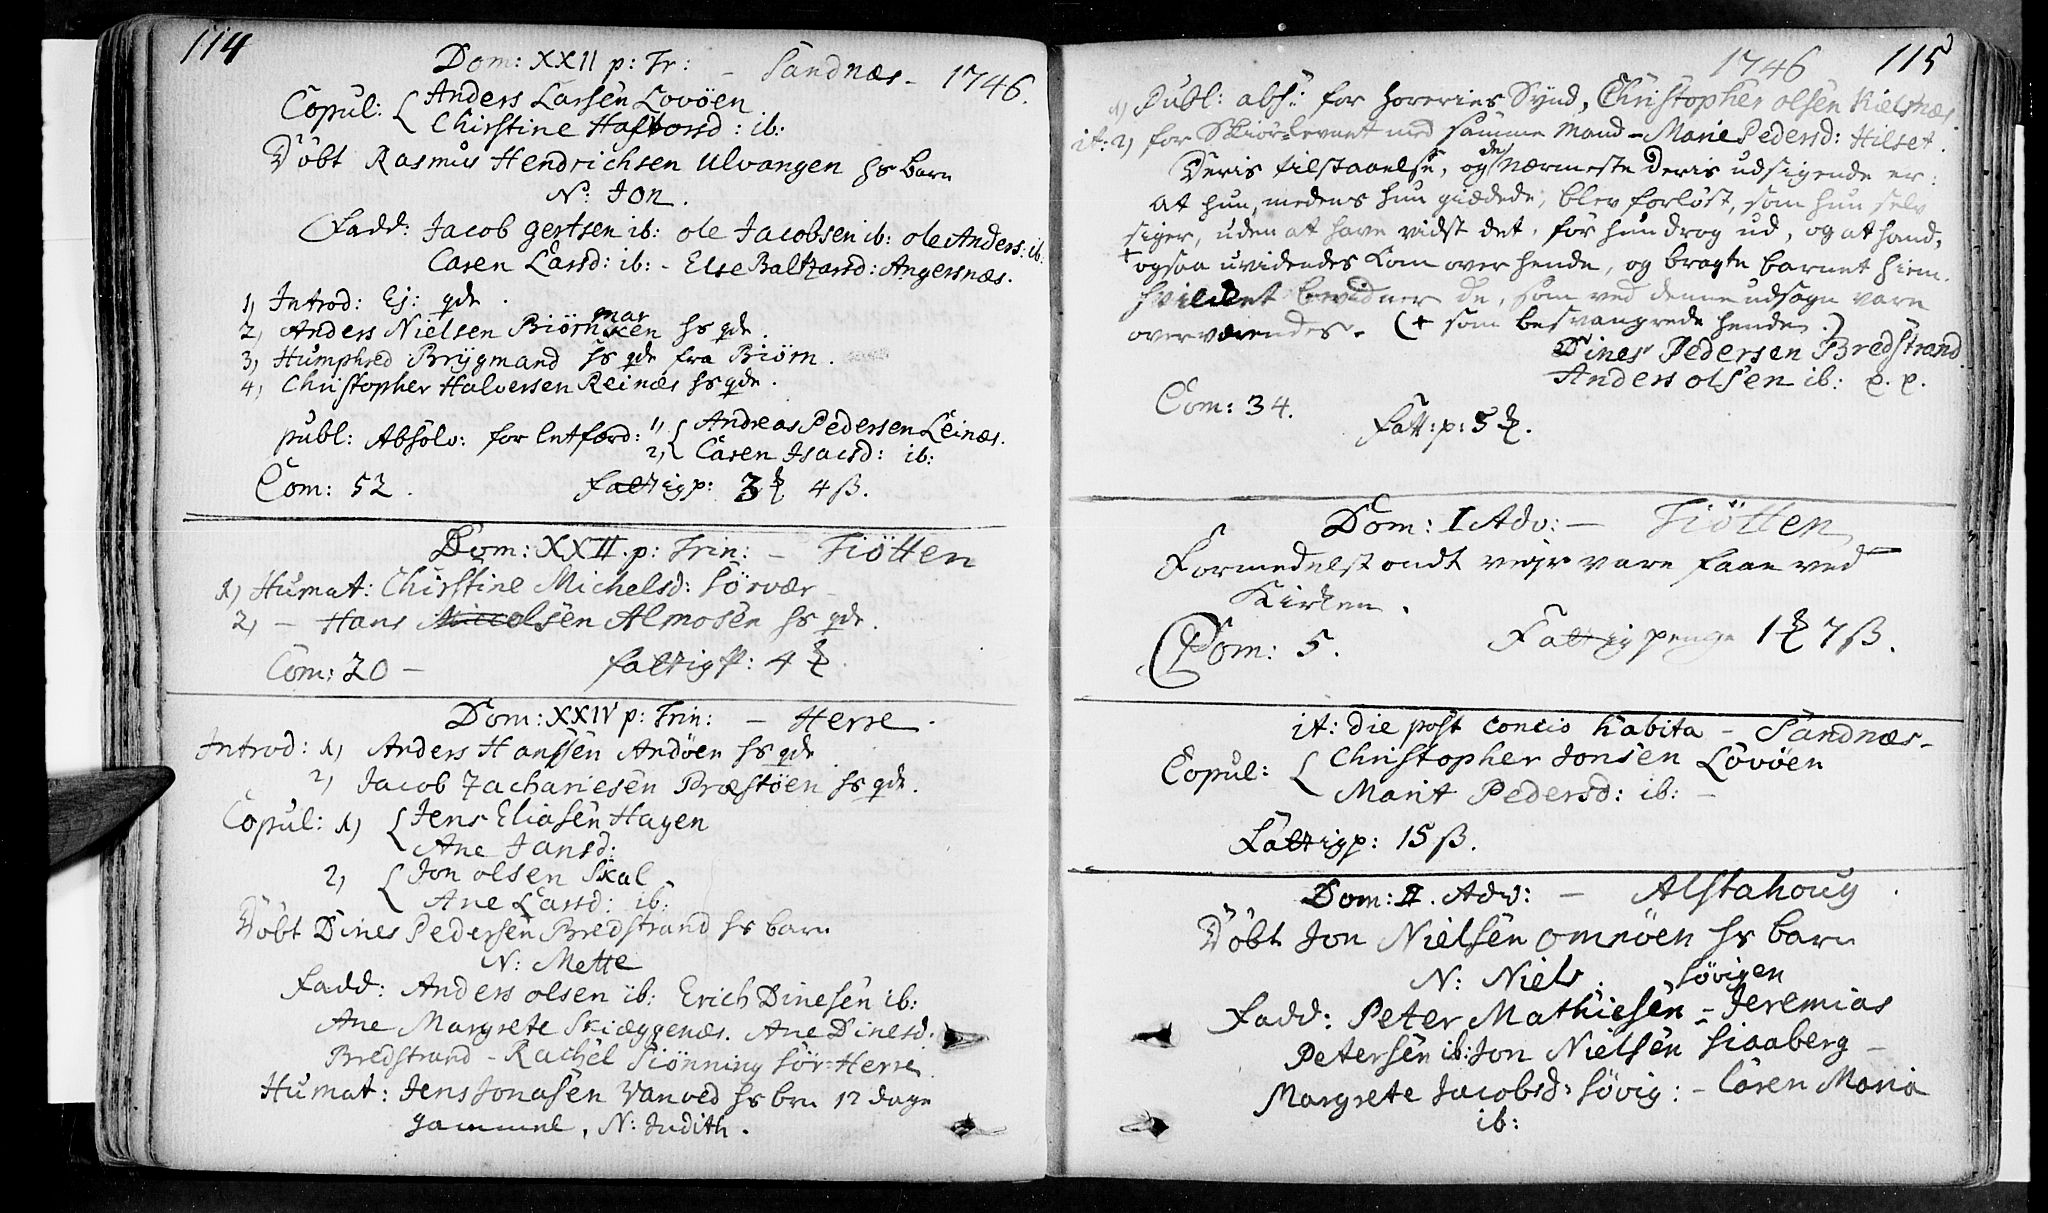 114
Dom: XXII p: Tr: - Sandnæs - 1746.
Copul: Anders Larsen Lovöen
Chirstine Haftorsd: ib:
Döbt Rasmus Hendrichsen Ulvangen hs barn
N: Jon.
Fadd: Jacob Gertsen ib: Ole Jacobsen ib: Ole Anders: ib.
Caren Larsd: ib: - Else Baltzarsd: Angersnæs.
1) Introd: Ej: qde.
2) Anders Nielsen Biörn hs qde.
3) Humphred Brÿgmand hs qde fra Biörn.
4) Christopher Halversen Reinæs hs qde.
publ: Absolv: for letferd: 1) Andreas Pedersen Leinæs.
2) Caren Isacsd: ib:
Com: 52. fattigp: 3 4 ß.
Dom: XXII. p: Trin: - Tiötten
1) Humat: Chirstine Michelsd: Sörvær -
2) - Hans Almosen hs qde.
Com: 20 - fattigp: 4
Dom: XXIV p: Trin: - Herre.
Introd: 1) Anders Hanssen Andöen hs qde
2) Jacob Zachariesen Præstöen hs qde.
Copul: 1) Jens Eliasen Hagen
Ane Jansd:
2) Jon Olsen Skal
Ane Larsd: ib:
Döbt Dines Pedersen Bredstrand hs barn
N: Mette
Fadd: Anders Olsen ib: Erich Dinesen ib:
Ane Margrete Skiæggenæs. Ane Dinesd:
Bredstrand - Rachel Siönning Sör-Herre.
Humat: Jens Jonasen Vanved hs brn 12 dage
gammel, N: Judith.
1746 115
1) Publ: abs: for Horeries Synd, Christopher Olsen Kielsnæs.
it: 2) for Skiörlevnet med samme Mand - Marie Pedersd: Hilset.
Deris tilstaaelse, og de Nærmeste deris udsigende er:
at hun, medens hun giædede, blev forlöst, som hun selv
siger, uden at have vidst det, för hun drog ud, og at hand,
+ ogsaa uvidendes kom over hende, og bragte barnet hiem.
hvilket bevidner de, som ved denne udsagn vare
overværendes. (+ som besvangrede hende.)
Dines Pedersen Bredstrand
Anders Olsen ib: p. p.
Com: 34.
Fatt: p: 5
Dom: I Adv: - Tiötten
Formedelst ondt vejr vare faae ved
Kirken.
Com: 5. Fattig penge 1 7 ß.
it: die post concio habita - Sandnæs -
Copul: Christopher Jonsen Lovöen
Marit Pedersd: ib: -
Fattigp: 15 ß.
Dom: II. Adv: - Alstahoug
Döbt Jon Nielsen Omnöen hs barn
N: Niels.
Sövigen
Fadd: Peter Mathiesen - Jeremias
Petersen ib: Jon Nielsen Siaaberg -
Margrete Jacobsd: Sövig: - Caren Maria
ib: